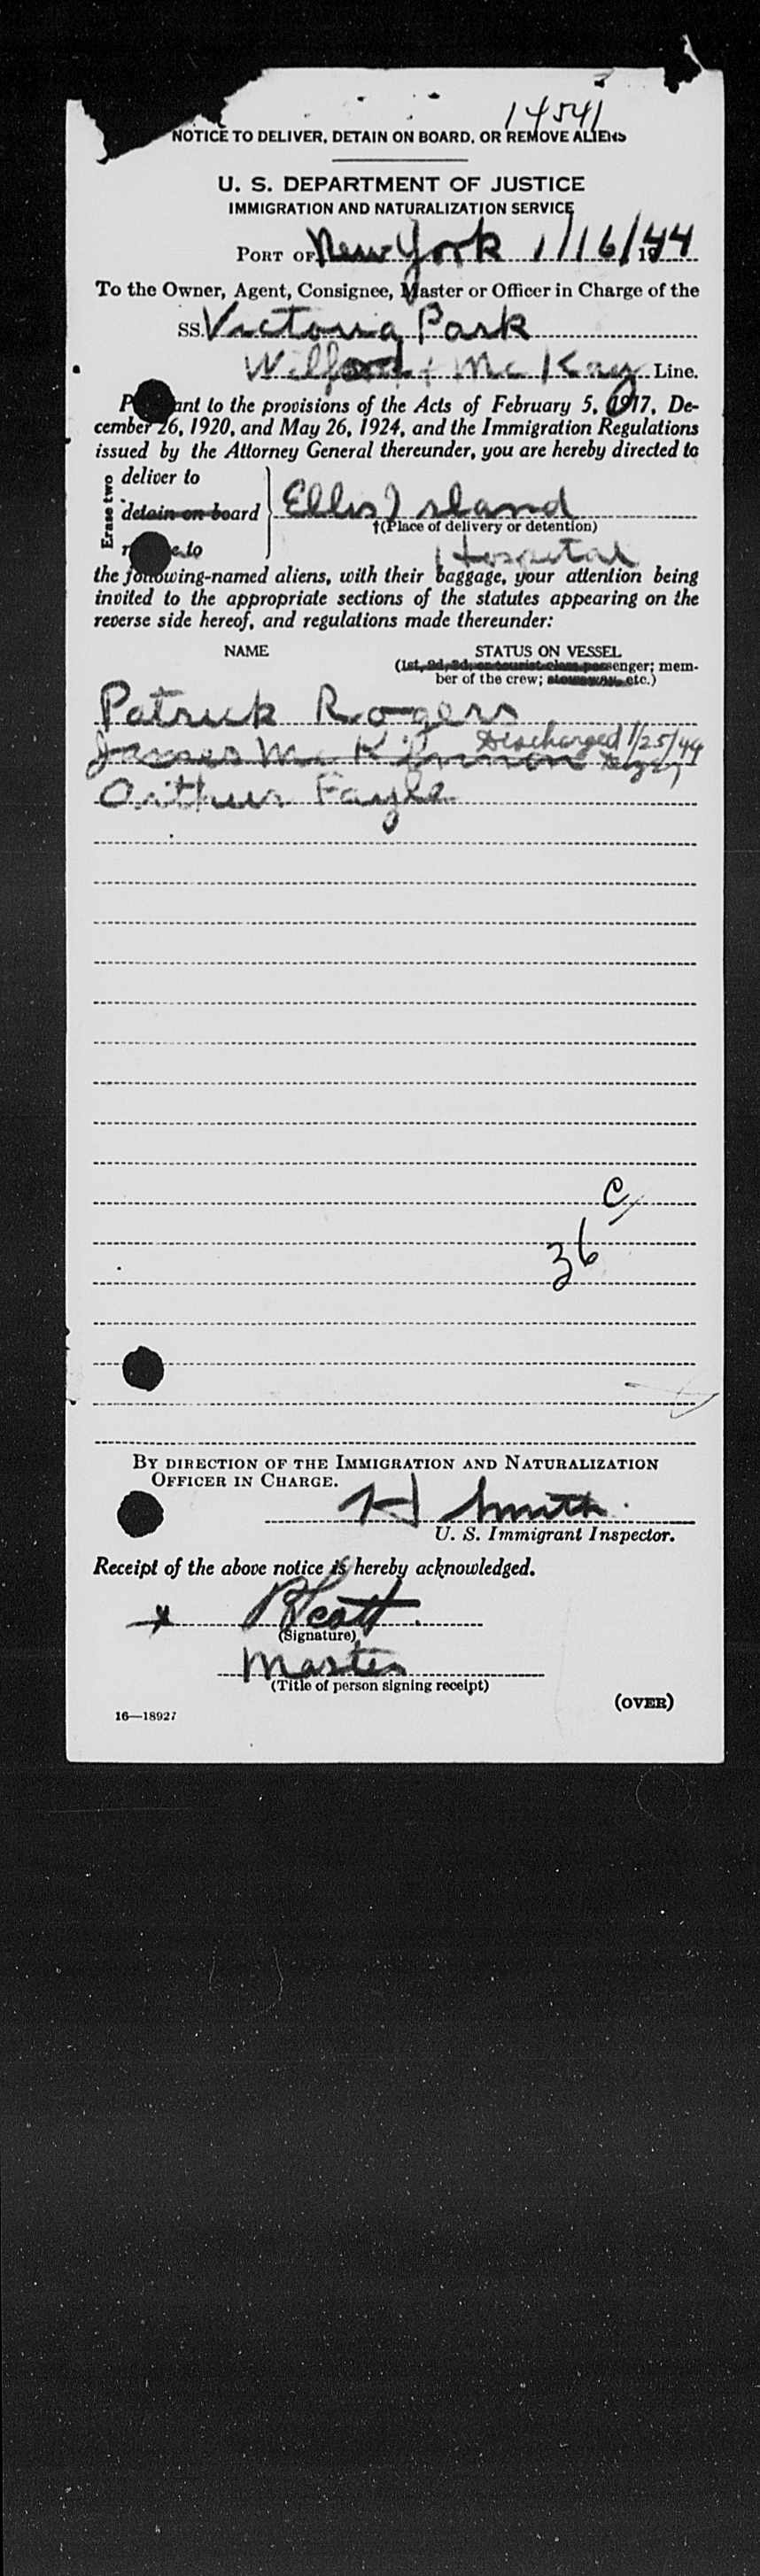 14541
NOTICE TO DELIVER, DETAIN ON BOARD, OR REMOVE ALIENS
U. S. DEPARTMENT OF JUSTICE
IMMIGRATION AND NATURALIZATION SERVICE
PORT OF New York 1/16/1944
To the Owner, Agent, Consignee, Master or Officer in Charge of the
SS. Victoria Park
Wilford & McKay Line.
P ant to the provisions of the Acts of February 5, 1917, De-
cember 26, 1920, and May 26, 1924, and the Immigration Regulations
issued by the Attorney General thereunder, you are hereby directed to
Erase two
deliver to
detain on board
Ellis Island
†(Place of delivery or detention)
r e to
Hospital
the following-named aliens, with their baggage, your attention being
invited to the appropriate sections of the statutes appearing on the
reverse side hereof, and regulations made thereunder:
NAME STATUS ON VESSEL
(1st, 2d, 3d, or tourist class passenger; mem-
ber of the crew; stowaway, etc.)
Patrick Rogers
James McKinnon Discharged 1/25/44
Arthur Fayle
C
36
BY DIRECTION OF THE IMMIGRATION AND NATURALIZATION
OFFICER IN CHARGE.
H Smith
U. S. Immigrant Inspector.
Receipt of the above notice is hereby acknowledged.
x R Scott
(Signature)
Master
(Title of person signing receipt)
(OVER)
16—18927